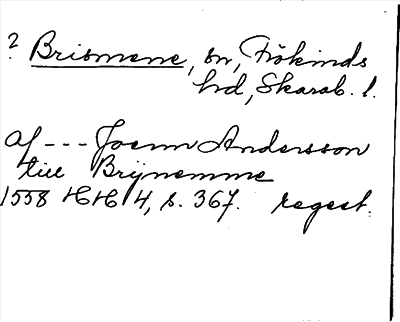 ? Brismene, sn, Frökinds
hd, Skarab. l.
af --- Joenn Andersson
till Brÿnemme
1558 HH 4, s. 367. regest.